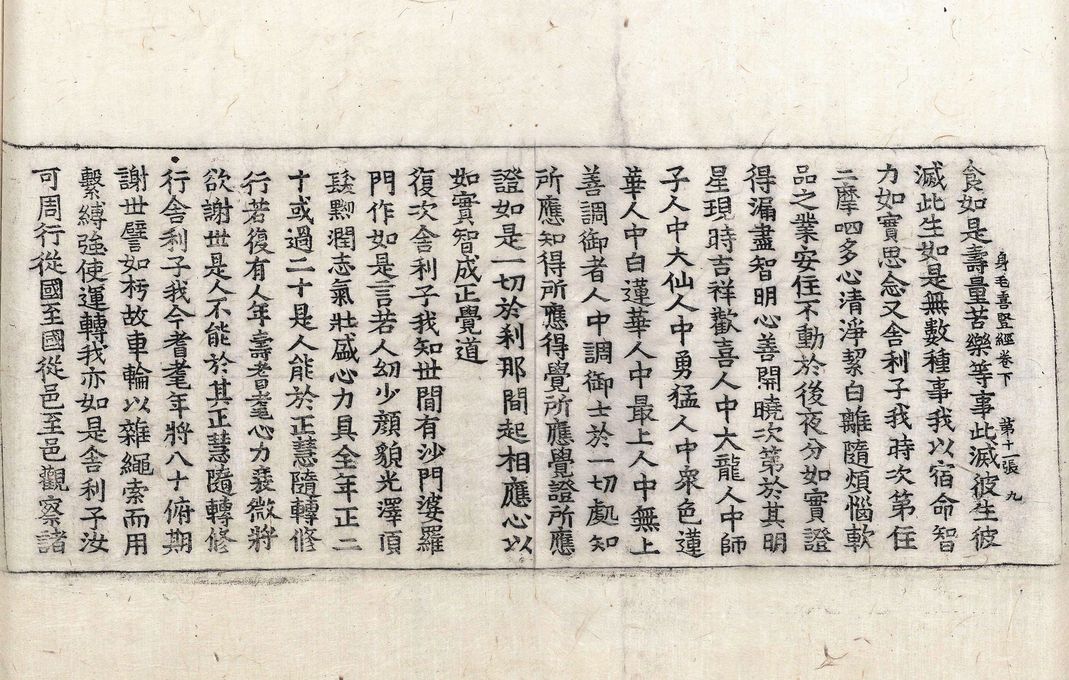 身毛喜竪經卷下 第十一張 九
食如是壽量苦樂等事此滅彼生彼
滅此生如是無數種事我以宿命智
力如實思念又舍利子我時次第住
三摩呬多心清淨潔白離隨煩惱軟
品之業安住不動於後夜分如實證
得漏盡智明心善開曉次第於其明
星現時吉祥歡喜人中大龍人中師
子人中大仙人中勇猛人中衆色蓮
華人中白蓮華人中最上人中無上
善調御者人中調御士於一切處知
所應知得所應得覺所應覺證所應
證如是一切於刹那間起相應心以
如實智成正覺道
復次舍利子我知世間有沙門婆羅
門作如是言若人幼少顔貌光澤頂
髮黝潤志氣壯盛心力具全年正二
十或過二十是人能於正慧隨轉修
行若復有人年壽耆耄心力衰微將
欲謝世是人不能於其正慧隨轉修
行舍利子我今耆耄年將八十俯期
謝世譬如朽故車輪以雜繩索而用
繫縛強使運轉我亦如是舍利子汝
可周行從國至國從邑至邑觀察諸